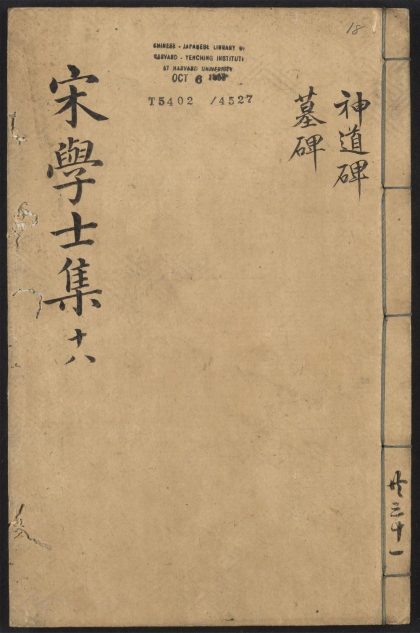 18
CHINESE - JAPANESE LIBRARY OF
HARVARD - YENCHING INSTITUTE
AT HARVARD UNIVERSITY
OCT 6
T5402 /4527
神道碑
墓碑
宋學士集 十八
共三十一